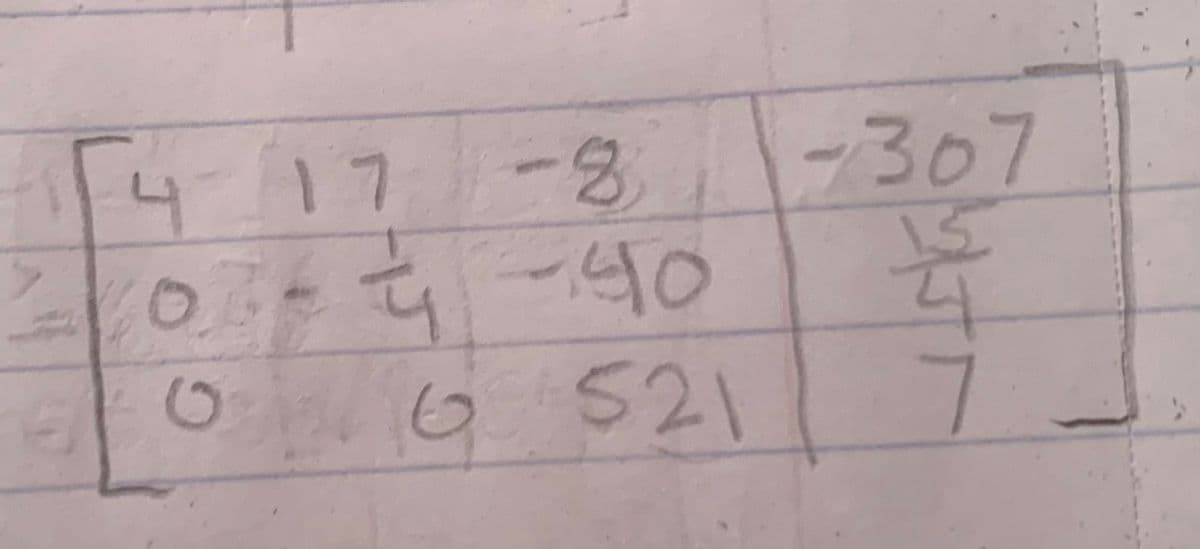 4 17 -8 | -307
0 -1/4 -40 | 15/4
0 0 521 | 7